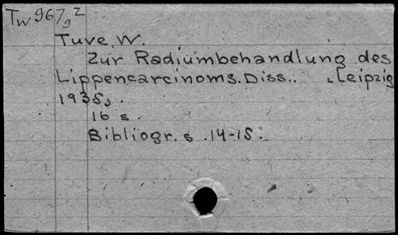 Tw 967/92
Tuve, W.
Zur Radiumbehandlung des
Lippencarcinoms. Diss.. Leipzig
1935.
16 s.
Bibliogr. s. 14-15.